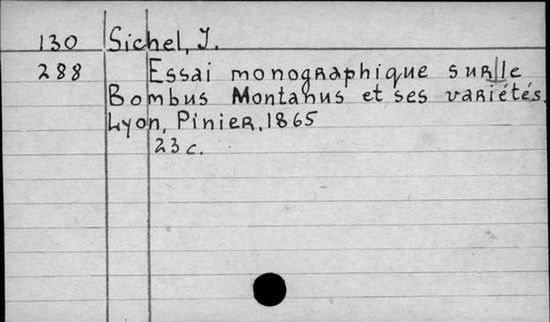 130 Sichel, J.
288 Essai monographique sur le
Bombus Montanus et ses variétés.
Lyon, Pinier, 1865
23 c.